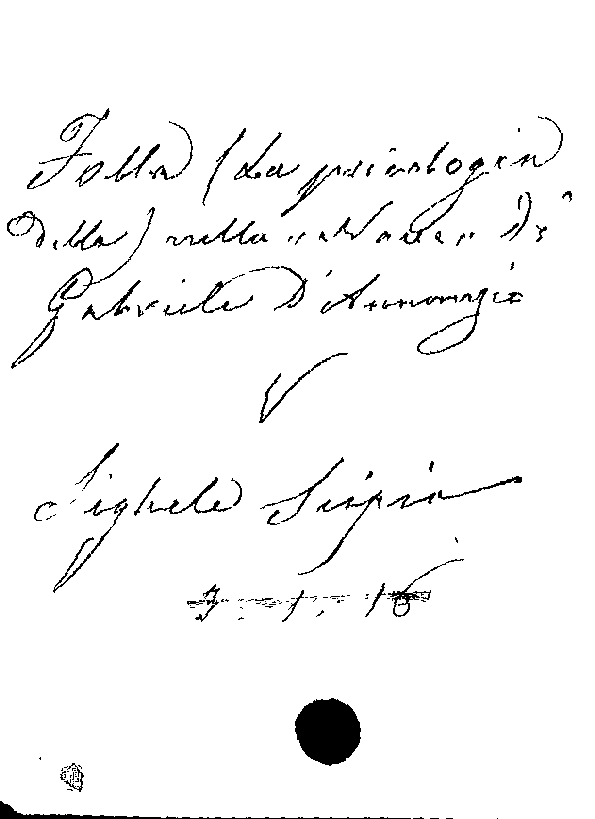 Folla (La psicologia
della) nella „ Nave „ di
Gabriele D'Annunzio
V
Sighele Scipio
J. 1. 16